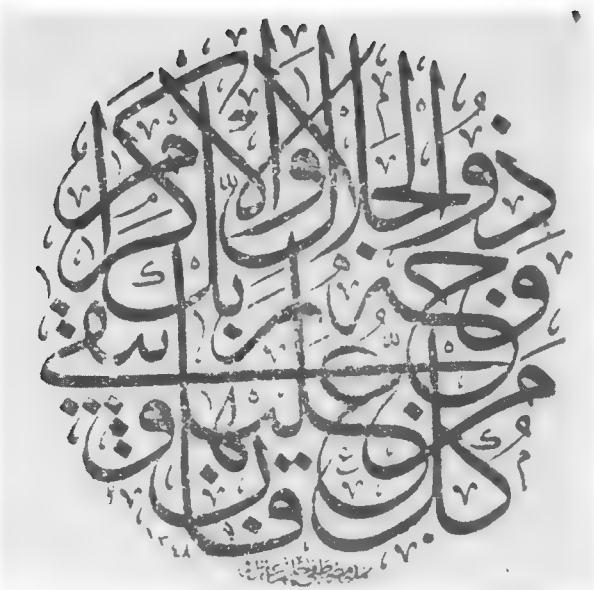 كُلُّ مَنْ عَلَيْهَا فَانٍ
وَيَبْقَى وَجْهُ رَبِّكَ
ذُو الْجَلَالِ وَالْإِكْرَامِ